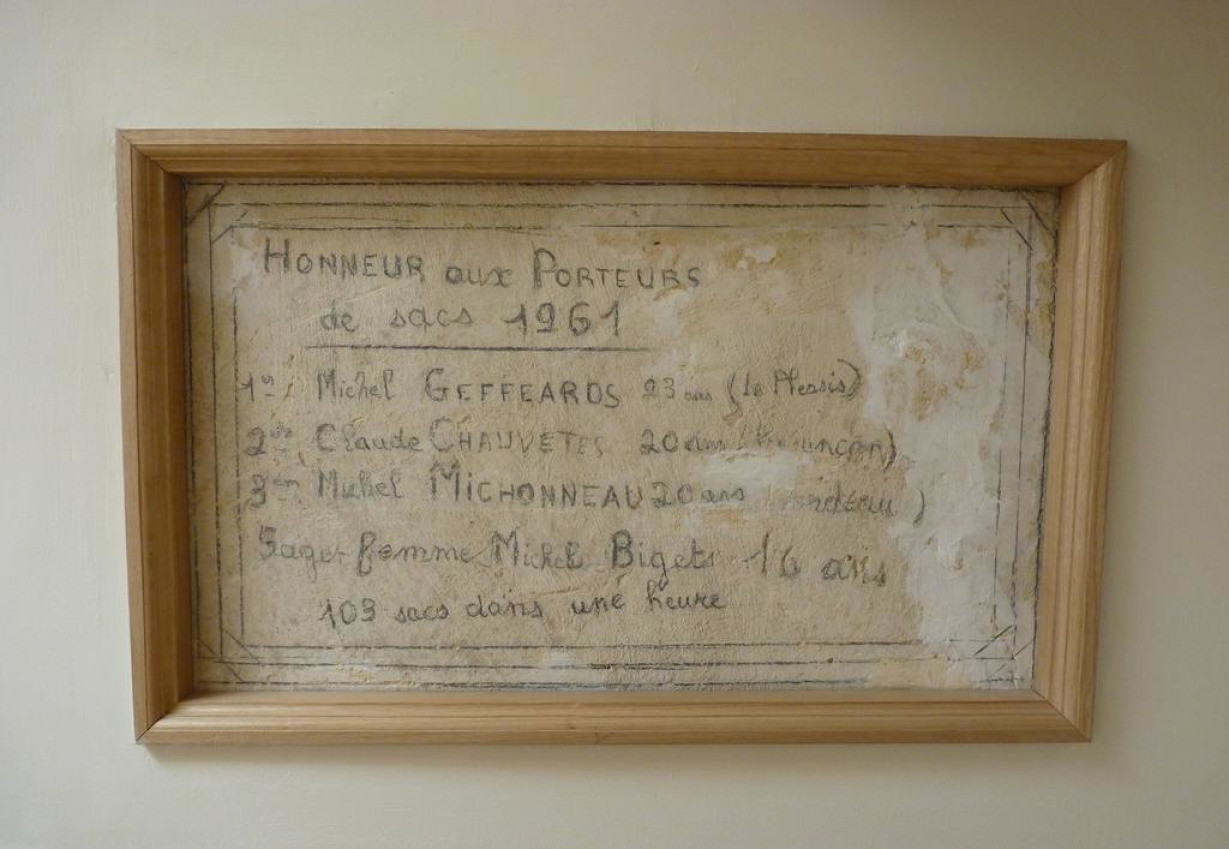 HONNEUR aux PORTEURS
de sacs 1961
1er Michel GEFFEARDS 23 ans (le Plessis)
2ème Claude CHAUVETES 20 ans
3em Michel MICHONNEAU 20 ans
Sage-femme Michel Bigets 16 ans
103 sacs dans une heure